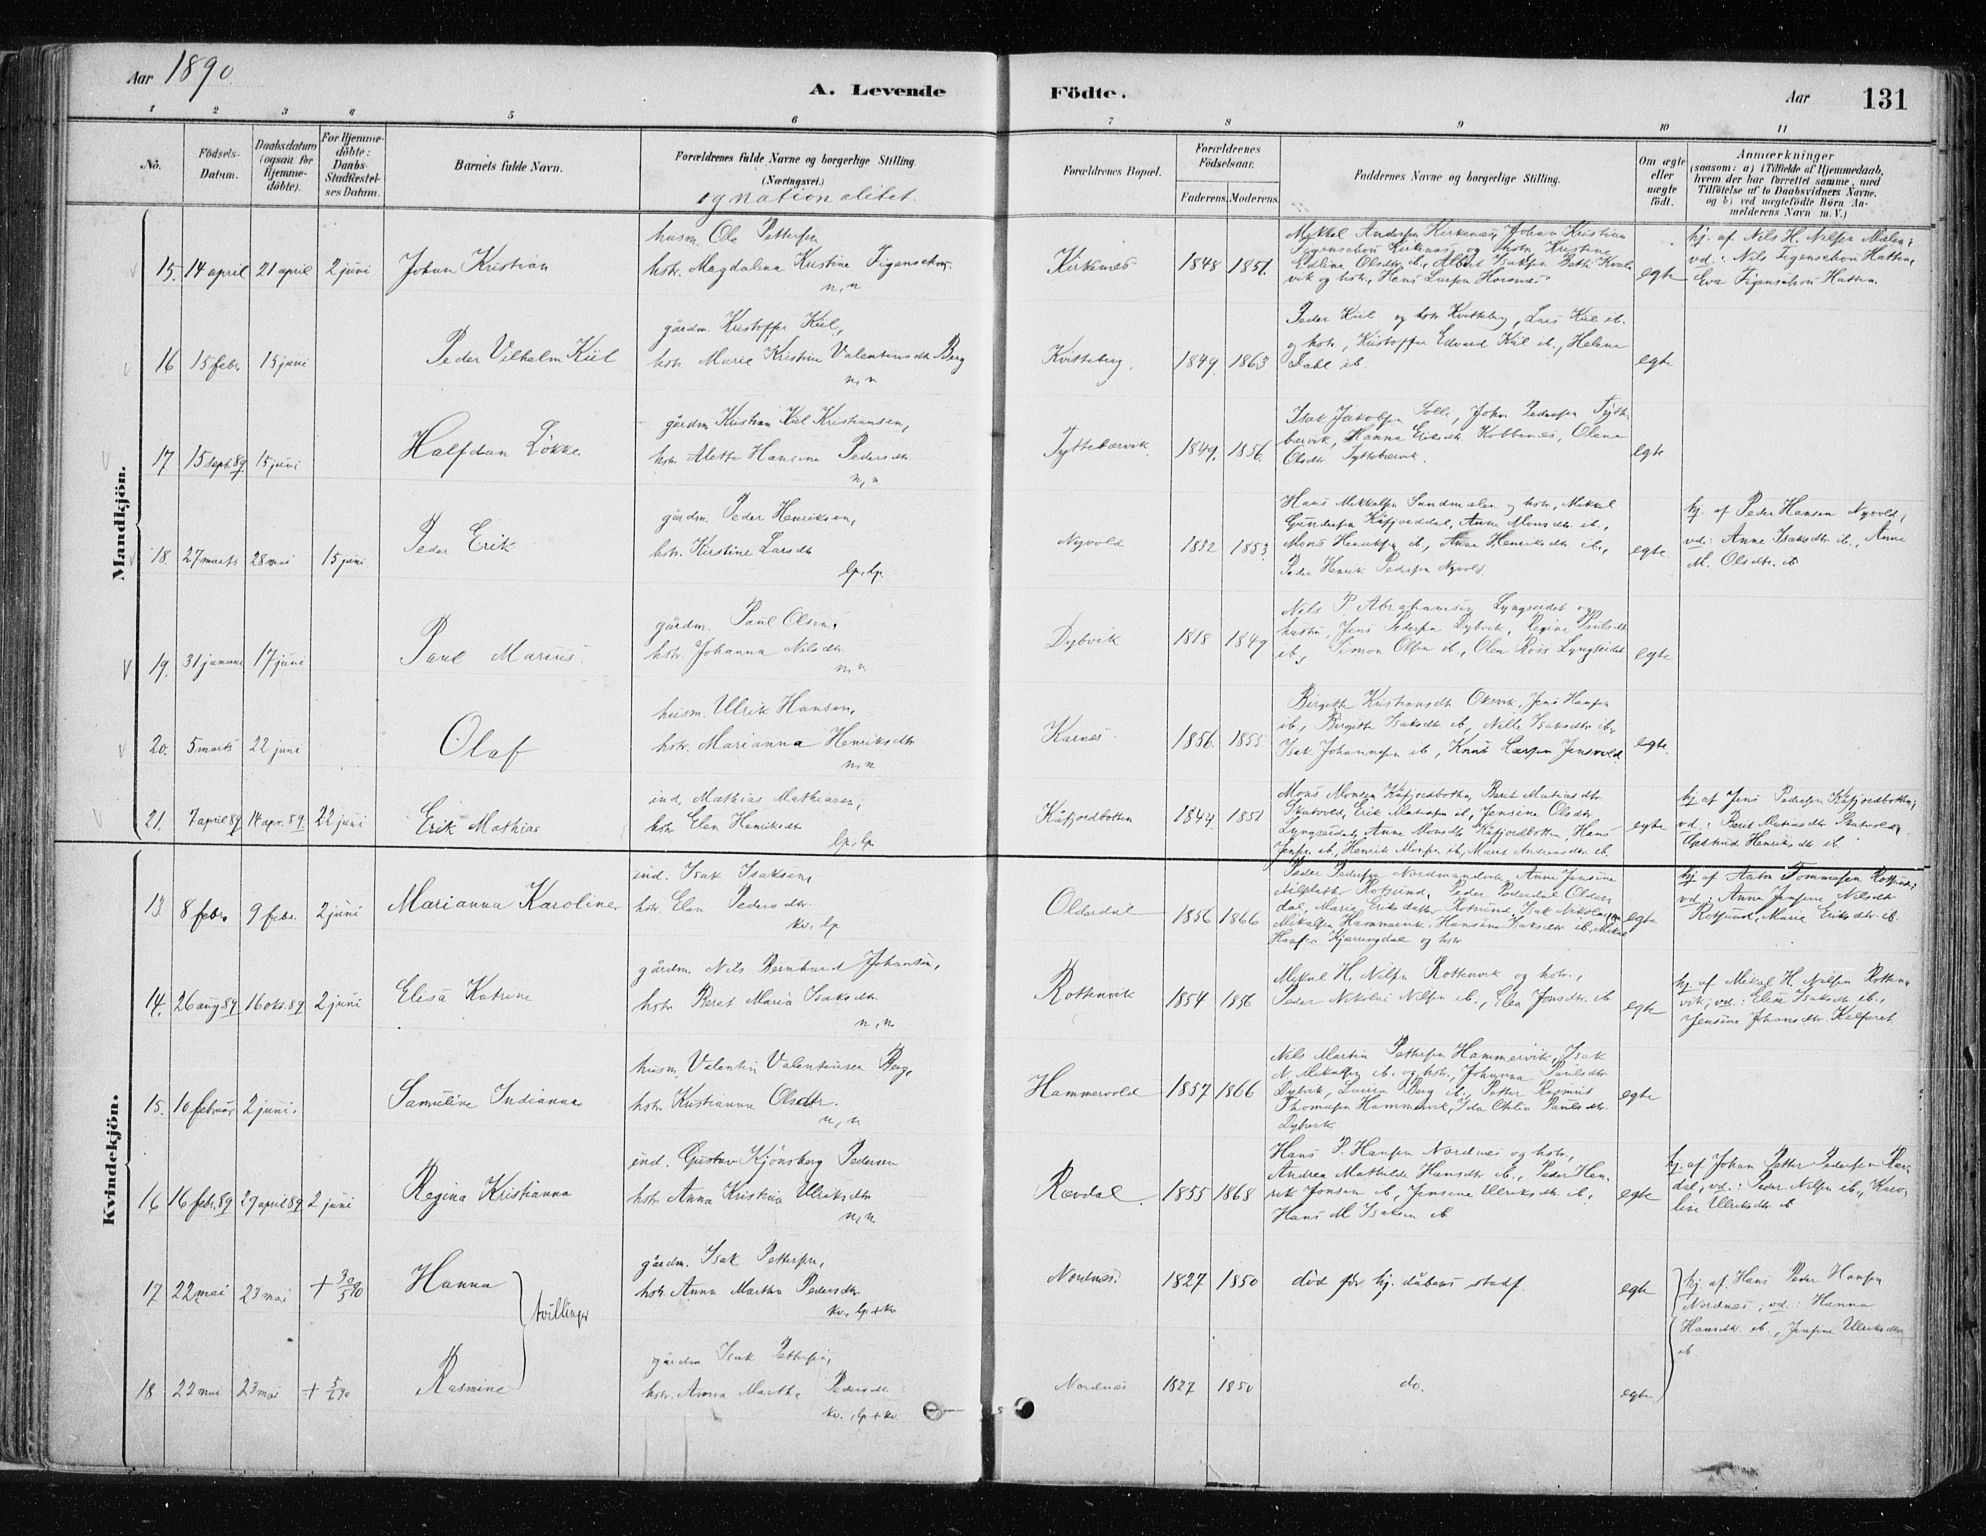 Aar 1890.
A. Levende Födte.
Aar 131
1 2 3 4 5 6 7 8 9 10 11
No.
Födsels-Datum.
Daabsdatum (ogsaa for Hjemmedöbte).
For Hjemmedöbte: Daabs-Stadfæstelses Datum.
Barnets fulde Navn.
Forældrenes fulde Navne og borgerlige Stilling. (Næringsvei.)
og nationalitet.
Forældrenes Bopæl.
Forældrenes Födselsaar.
Faderens. Moderens.
Faddernes Navne og borgerlige Stilling.
Om ægte eller uægte födt.
Anmærkninger
(saasom: a) i Tilfælde af Hjemmedaab,
hvem der har forrettet samme, med
Tilföielse af to Daabsvidners Navne,
og b) ved uægtefödte Börn Anmelderens Navn m. V.)
Mandkjön.
15. 14 april 21 april 2 juni Johan Kristian
husm. Ole Pettersen
hstr. Magdalena Kristine Figenschou.
n, n
Kirkenes 1848 1851.
Mikkel Andersen Kirkenes, Johan Kristian
Figenschou Kirknæs og hstr. Kristine
Edline Olsdtr. ib., Albert Isaksen
vik og hstr., Hans Larsen Horsnæs
egte
hj. af Nils H. Nilsen Mælen;
vd.: Nils Figenschou Hatten,
Eva Figenschou Hatten.
16 15 febr. 15 juni Peder Vilhelm Kiil
gårdm. Kristoffer Kiil,
hstr. Marie Kristine Valentinsdtr Berg
n, n
Kvitteberg. 1849. 1863
Peder Kiil og hstr Kvitteberg, Lars Kiil ib.
og hstr., Kristoffer Edvard Kiil ib., Helene
Dahl ib.
egte
17 15 sept. 89 15 juni Halfdan Løkke.
gårdm. Kristian Kiil Kristiansen,
hstr. Aletta Hansine Pedersdtr
n, n
Tyttebærvik. 1849. 1856.
Isak Jakobsen Solli, Johan Pedersen Tytte-
bærvik, Hanna Eriksdtr Kobbenes, Olena
Olsdtr Tyttebærvik.
egte.
18. 27 marts 28 mai 15 juni Peder Erik
gårdm. Peder Henriksen,
hstr. Kirstine Larsdtr
lp., lp.
Nyvold 1832 1853.
Hans Mikkelsen Sandmelen og hstr., Mikkel
Gundersen Kåfjorddal, Anne Monsdtr. ib.,
Mons Henriksen ib., Anne Henriksdtr ib.,
Peder Henrik Pedersen Nyvold.
egte.
hj. af Peder Hansen Nyvold;
vd: Anne Isaksdtr. ib., Anne
M. Olsdtr. ib
19. 31 januar 17 juni Paul Marius
gårdm. Paul Olsen,
hstr. Johanna Nilsdtr.
n, n.
Dybvik 1818 1849
Nils P. Abrahamsen Lyngseidet og
hustru, Jens Pedersen Dybvik, Regine Paulsdtr
ib., Simon Olsen ib., Olea Ross Lyngseidet
egte
20. 5 marts 22 juni Olaf
husm. Ulrik Hansen,
hstr. Marianna Henriksdtr
n, n.
Karnes 1856. 1855
Birgitte Kristiansdtr Oksvik, Jens Hansen
ib., Birgitte Isaksdtr ib., Nille Isaksdtr ib.,
Isak Johannesen ib., Knut Larsen Jensvold.
egte.
21. 7 april 89 14 apr. 89. 22 juni Erik Mathias
ind. Mathias Mathiasen,
hstr. Elen Henriksdtr
lp., lp
Kåfjordbotten 1844. 1851
Mons Monsen Kåfjordbotten, Berit Matiasdtr
Skatvold, Erik Matiasen ib., Jensine Olsdtr
Lyngseidet, Anne Monsdtr Kåfjordbotten, Hans
Jensen ib., Henrik Monsen ib., Marit Andreasdtr ib.
egte
hj. af Jens Pedersen Kåfjordbotten;
vd: Berit Matiasdtr Skatvold,
Henriksdtr ib.
Kvindekjön.
13 8 febr. 9 febr. 2 juni Marianna Karoline
ind. Isak Isaksen,
hstr. Elen Pedersdtr.
kv., lp
Olderdal 1856 1866
Peder Pedersen Nordmandvik, Anne Jensine
Nilsdatter Rotsund, Peder Older-
dal, Marie Eriksdatter Rotsund, Isak Nikolai
Mikalsen Hammervik, Hansine Isaksdtr ib., Mikal
Hansen Kjerringdal og hstr
egte
hj. af Anton Tommesen Rotsund;
vd: Anna Jensine Nilsdtr
Rotsund, Marie Eriksdtr. ib.
14. 26 aug 89 16 okt. 89 2 juni Elisa Katrine
gårdm. Nils Bernhard Johansen,
hstr. Beret Maria Isaksdtr
n, n.
Rottenvik 1854 1856
Mikal H. Nilsen Rottenvik og hstr.,
Peder Nikolai Nilsen ib., Elen Jonsdtr. ib
egte
hj. af Mikal H. Nilsen Rotten-
vik; vd: Elise Isaksdtr ib.,
Jensine Johansdtr. Kalfaret.
15. 10 februar 2 juni. Samuline Indianna
husm. Valentin Valentinsen Berg,
hstr. Kristianna Olsdtr.
n, n
Hammervold 1857 1866
Nils Martin Pettersen Hammervik, Isak
N. Mikalsen ib. og hstr., Johanna Paulsdtr
Dybvik, Luisa Berg ib., Petter Rasmus
Thomasen Hammervik, Ida Otelia Paulsdtr.
Dybvik.
egte
16 16 febr. 89 27 april 89 2 juni Regina Kristianna
ind. Gustav Kjønsberg Pedersen
hstr Anna Kristina Ulriksdtr
n, n.
Rævdal 1855 1868
Hans P. Hansen Nordnes og hstr.,
Andrea Mathilde Hansdtr ib., Peder Hen-
rik Jonsen ib., Jensine Ulriksdtr ib.,
Hans M. Isaksen ib
egte
hj. af Johan Petter Pedersen Ræv-
dal; vd: Peder Nilsen ib., Karo-
line Ulriksdtr ib
17 22 mai 23 mai + 30/5 90 Hanna
tvillinger
gårdm. Isak Pettersen,
hstr. Anna Martha Pedersdtr.
kv., lp + kv
Nordnes. 1827 1850
död før hj. dåbens stadf.
egte
hj. af Hans Peder Hansen
Nordnes; vd: Hanna
Hansdtr. ib., Jensine Ulriksdtr
ib
18 22 mai 23 mai + 5/6 90 Rasmine
gårdm Isak Pettersen,
hstr. Anna Martha Pedersdtr
kv., lp + kv.
Nordnes 1827 1850
do.
egte